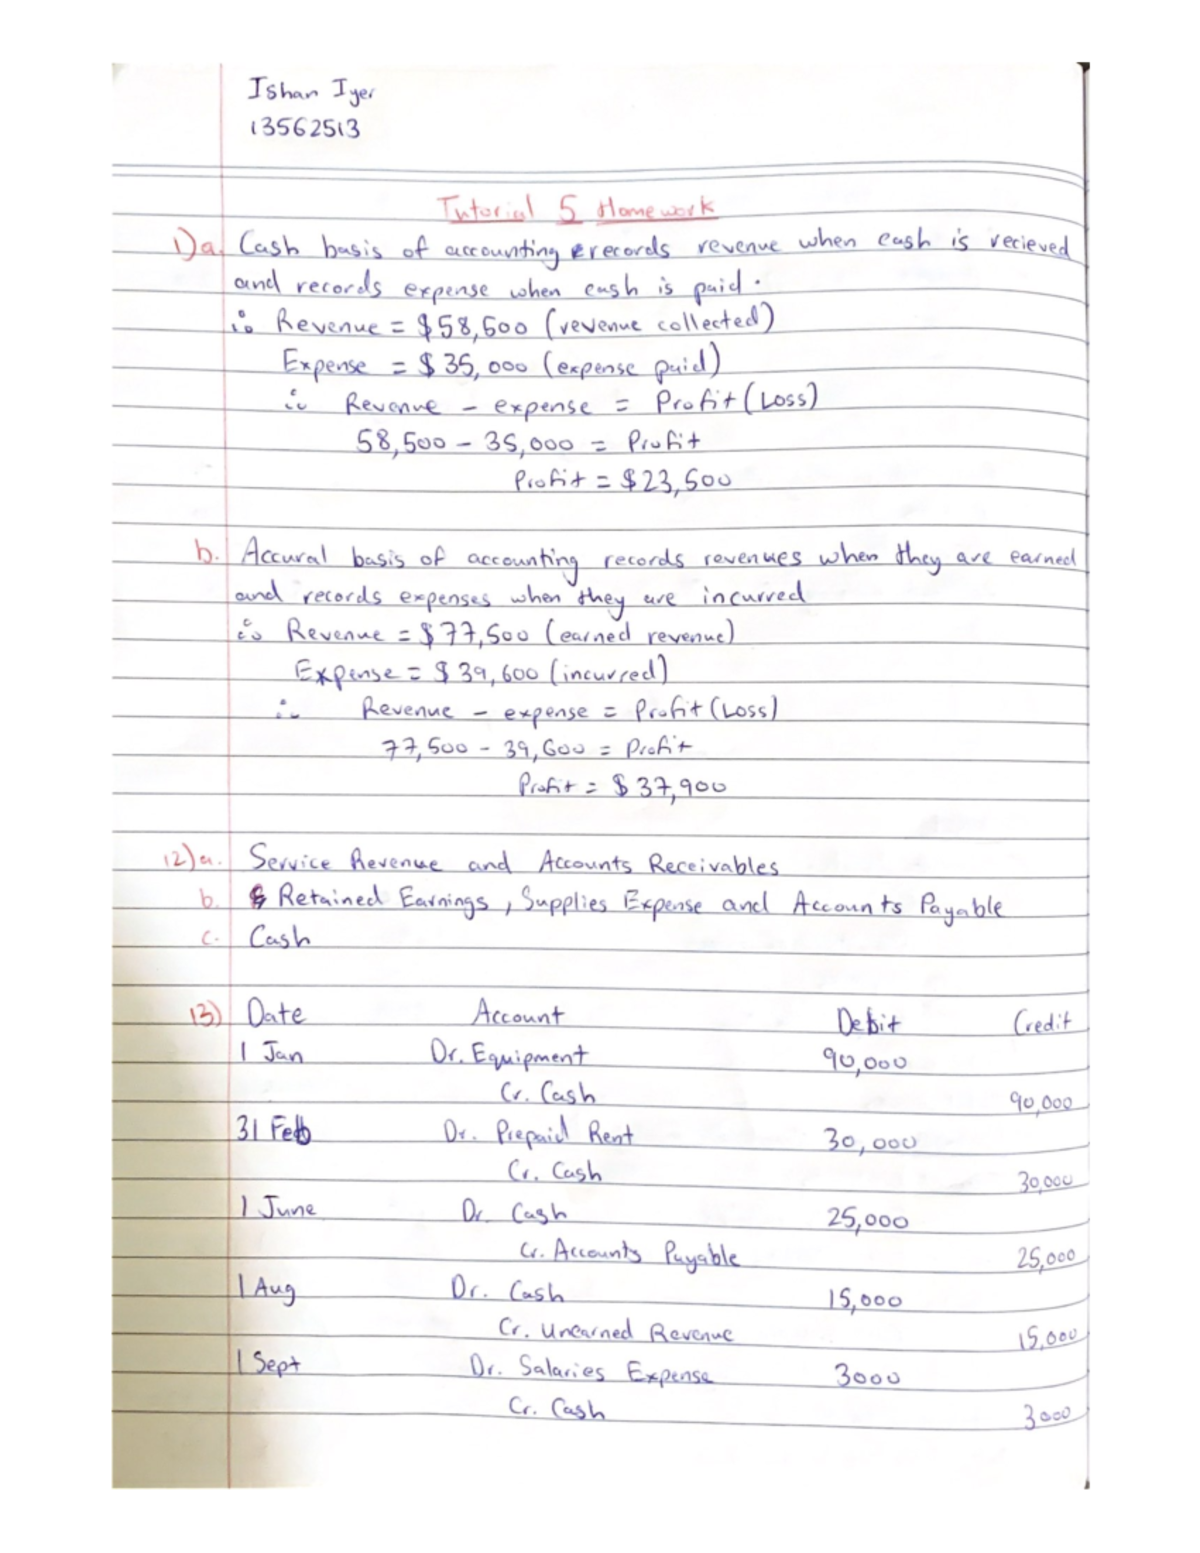 Ishan Iyer
13562513
Tutorial 5 Homework
1) a. Cash basis of accounting records revenue when cash is recieved
and records expense when cash is paid.
∴ Revenue = $58,500 (revenue collected)
Expense = $35,000 (expense paid)
∴ Revenue - expense = Profit (Loss)
58,500 - 35,000 = Profit
Profit = $23,500
b. Accural basis of accounting records revenues when they are earned
and records expenses when they are incurred
∴ Revenue = $77,500 (earned revenue)
Expense = $39,600 (incurred)
∴ Revenue - expense = Profit (Loss)
77,500 - 39,600 = Profit
Profit = $37,900
12) a. Service Revenue and Accounts Receivables
b. Retained Earnings, Supplies Expense and Accounts Payable
c. Cash
13) Date Account Debit Credit
1 Jan Dr. Equipment 90,000
Cr. Cash 90,000
31 Feb Dr. Prepaid Rent 30,000
Cr. Cash 30,000
1 June Dr. Cash 25,000
Cr. Accounts Payable 25,000
1 Aug Dr. Cash 15,000
Cr. Unearned Revenue 15,000
1 Sept Dr. Salaries Expense 3000
Cr. Cash 3000